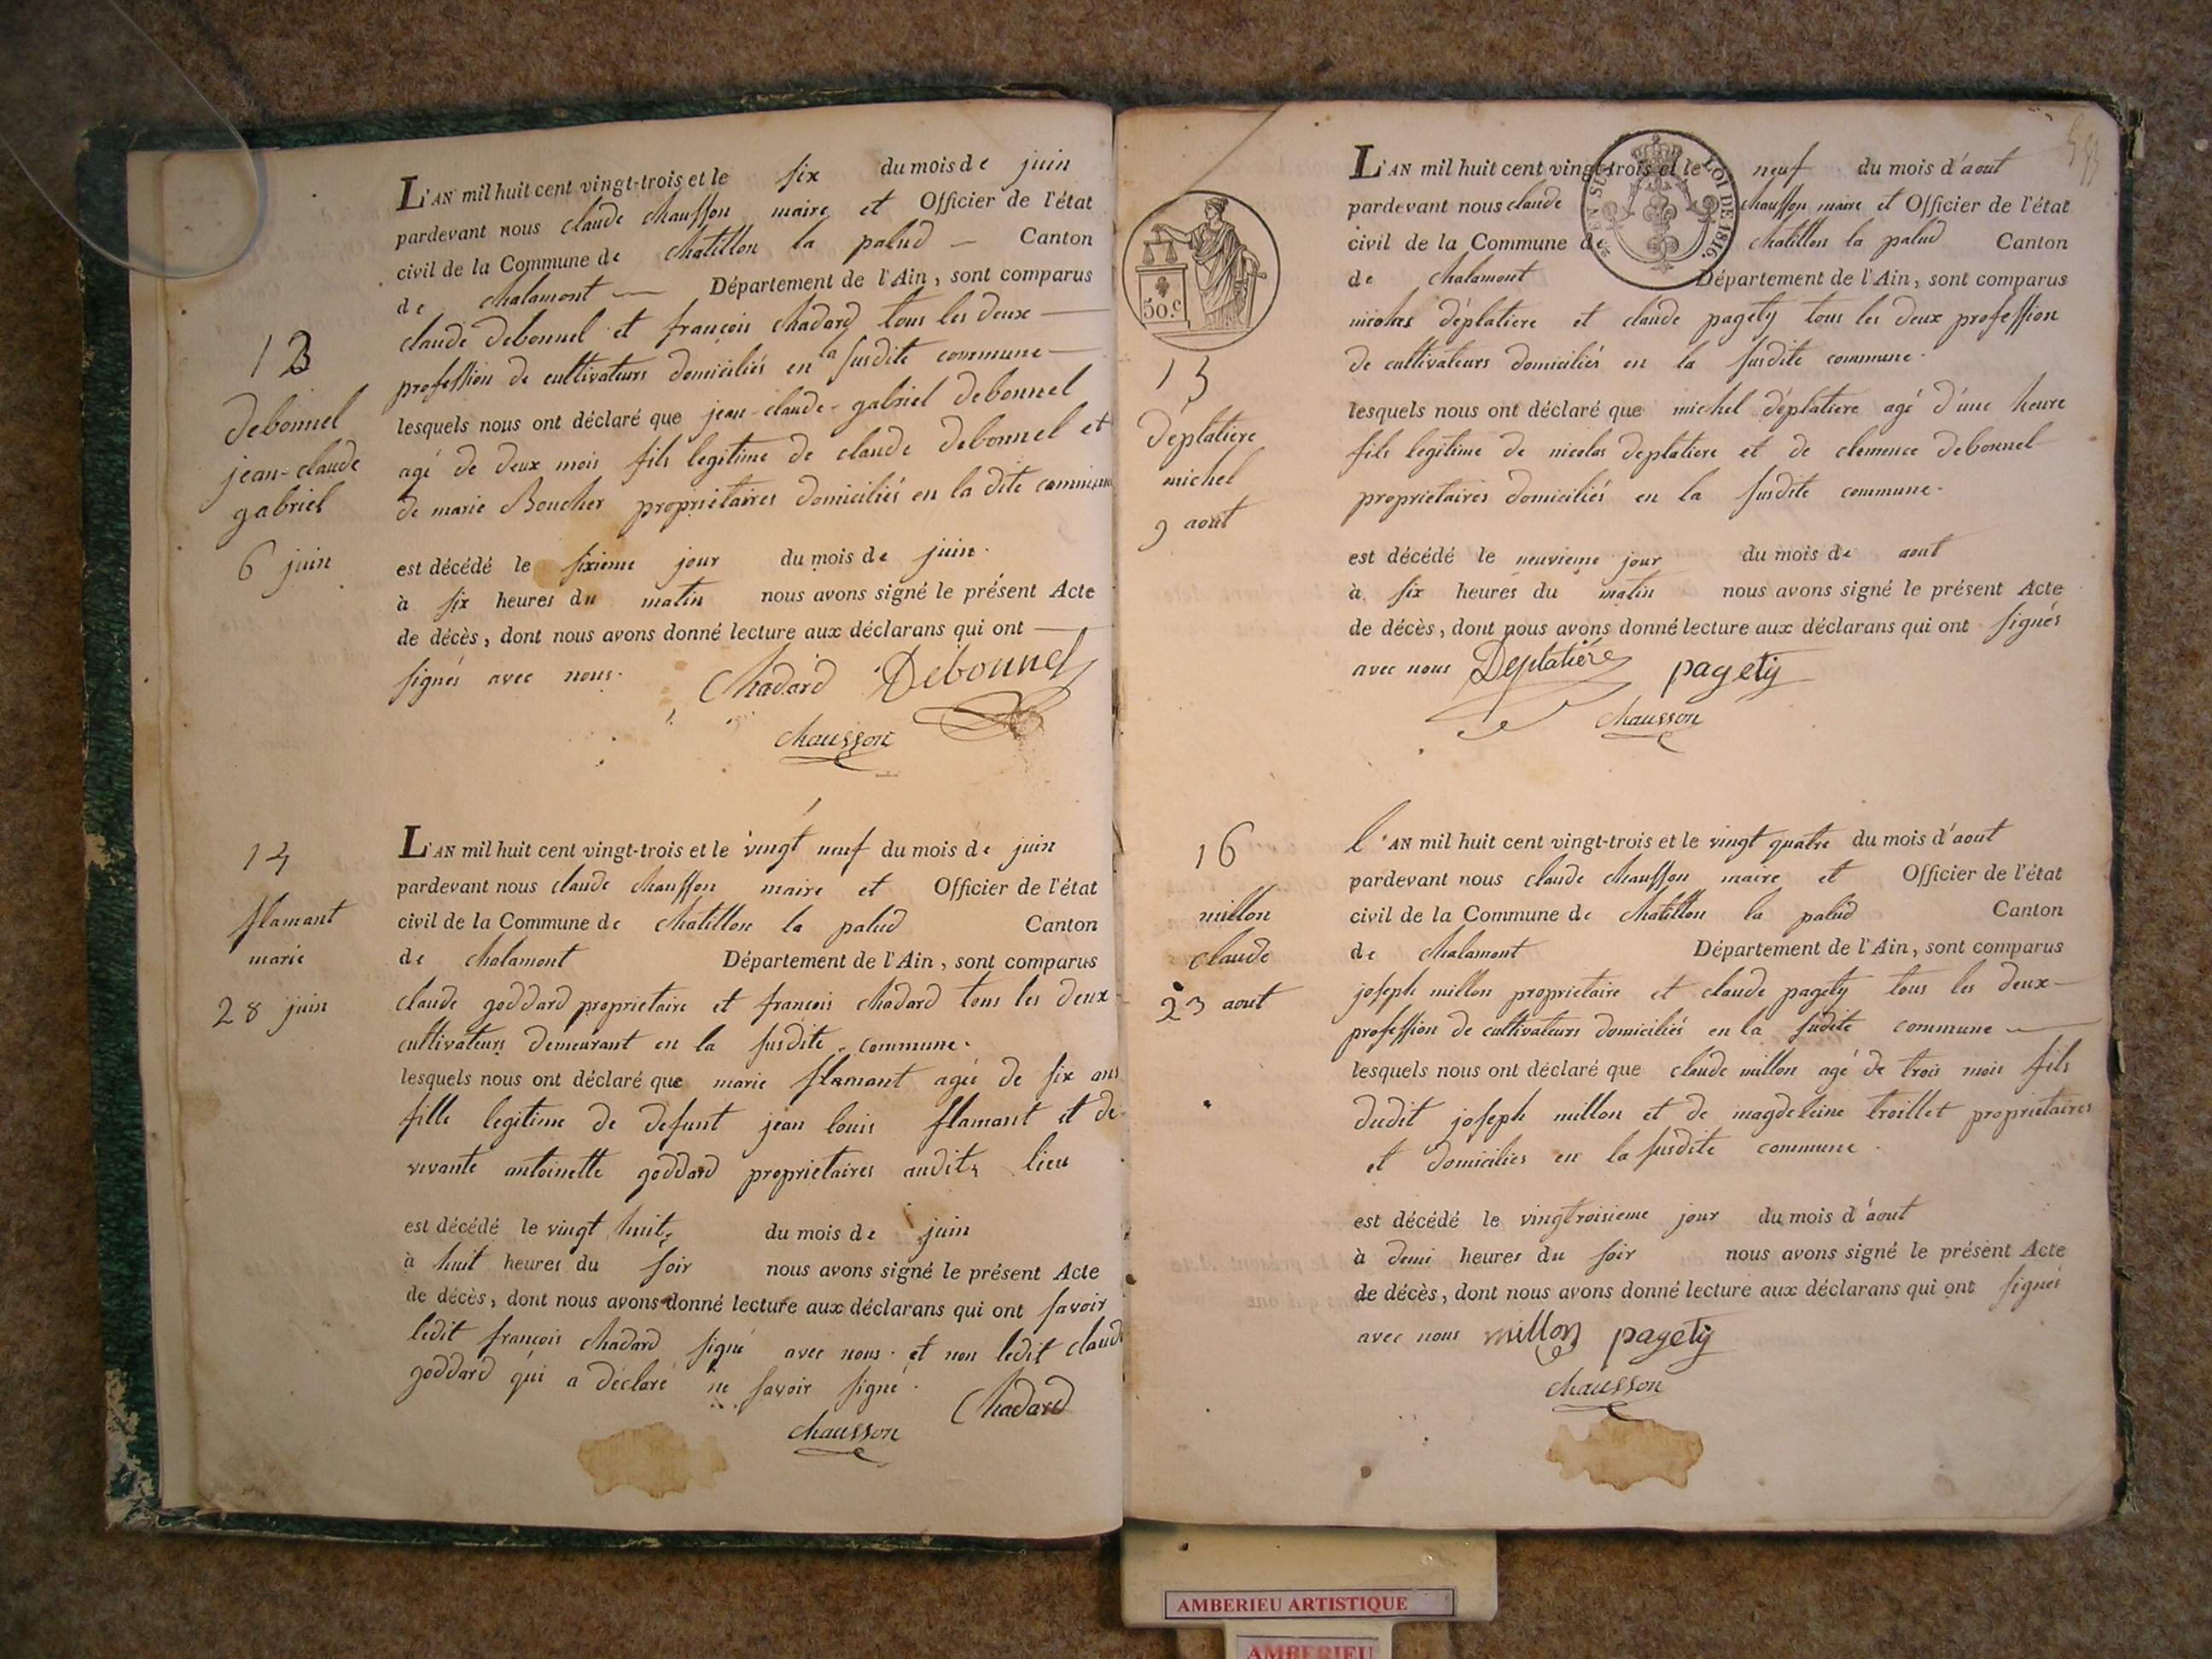 L'AN mil huit cent vingt-trois et le six du mois de juin
pardevant nous claude chausson maire et Officier de l'état
civil de la Commune de chatillon la palud — Canton
de chalamont — Département de l'Ain, sont comparus
claude debonnel et françois chadard tous les deux —
profession de cultivateurs domiciliés en la susdite commune —
lesquels nous ont déclaré que jean-claude-gabriel debonnel
agé de deux mois fils legitime de claude debonnel et
de marie Boucher propriétaires domiciliés en la dite commune
est décédé le sixieme jour du mois de juin.
à six heures du matin nous avons signé le présent Acte
de décès, dont nous avons donné lecture aux déclarans qui ont —
signés avec nous.
Chadard Debonnel
chausson
13
debonnel
jean-claude
gabriel
6 juin
14
flamant
marie
28 juin
L'AN mil huit cent vingt-trois et le vingt neuf du mois de juin
pardevant nous claude chausson maire et Officier de l'état
civil de la Commune de chatillon la palud Canton
de chalamont Département de l'Ain, sont comparus
claude goddard proprietaire et francois chadard tous les deux
cultivateurs demeurant en la susdite commune.
lesquels nous ont déclaré que marie flamant agée de six ans
fille legitime de defunt jean louis flamant et de
vivante antoinette goddard proprietaires audit lieu
est décédé le vingt huit du mois de juin
à huit heures du soir nous avons signé le présent Acte
de décès, dont nous avons donné lecture aux déclarans qui ont savoir
ledit françois chadard signé avec nous. et non ledit claude
goddard qui a déclaré ne savoir signé.
Chadard
chausson
L'AN mil huit cent vingt-trois et le neuf du mois d'aout
pardevant nous claude chausson maire et Officier de l'état
civil de la Commune de chatillon la palud Canton
de chalamont Département de l'Ain, sont comparus
nicolas déplatiere et claude pagety tous les deux profession
de cultivateurs domiciliés en la susdite commune.
lesquels nous ont déclaré que michel déplatiere agé d'une heure
fils legitime de nicolas deplatiere et de clemence debonnel
proprietaires domiciliés en la susdite commune.
est décédé le neuvieme jour du mois de aout
à six heures du matin nous avons signé le présent Acte
de décès, dont nous avons donné lecture aux déclarans qui ont signés
avec nous Deplatiére pagety
chausson
LOI DE 1816.
50.c
15
déplatiere
michel
9 aout
16
millon
claude
23 aout
l'AN mil huit cent vingt-trois et le vingt quatre du mois d'aout
pardevant nous claude chausson maire et Officier de l'état
civil de la Commune de chatillon la palud Canton
de chalamont Département de l'Ain, sont comparus
joseph millon proprietaire et claude pagety tous les deux —
profession de cultivateurs domiciliés en la sudite commune —
lesquels nous ont déclaré que claude millon agé de trois mois fils
dudit joseph millon et de magdeleine troillet proprietaires
et domicilies en la susdite commune.
est décédé le vingtroisieme jour du mois d'aout
à demi heures du soir nous avons signé le présent Acte
de décès, dont nous avons donné lecture aux déclarans qui ont signés
avec nous millon pagety
chausson
AMBERIEU ARTISTIQUE
AMBERIEU